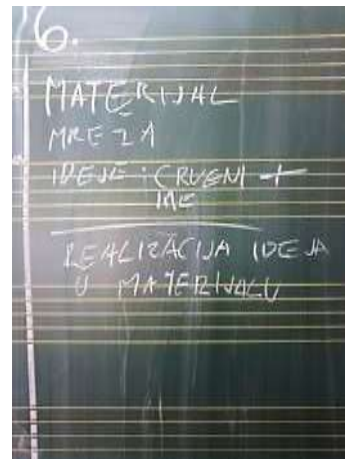 6.
MATERIJAL
MREZA
IDEJE : CRVENI +
IME
REALIZACIJA IDEJA
U MATERIJALU